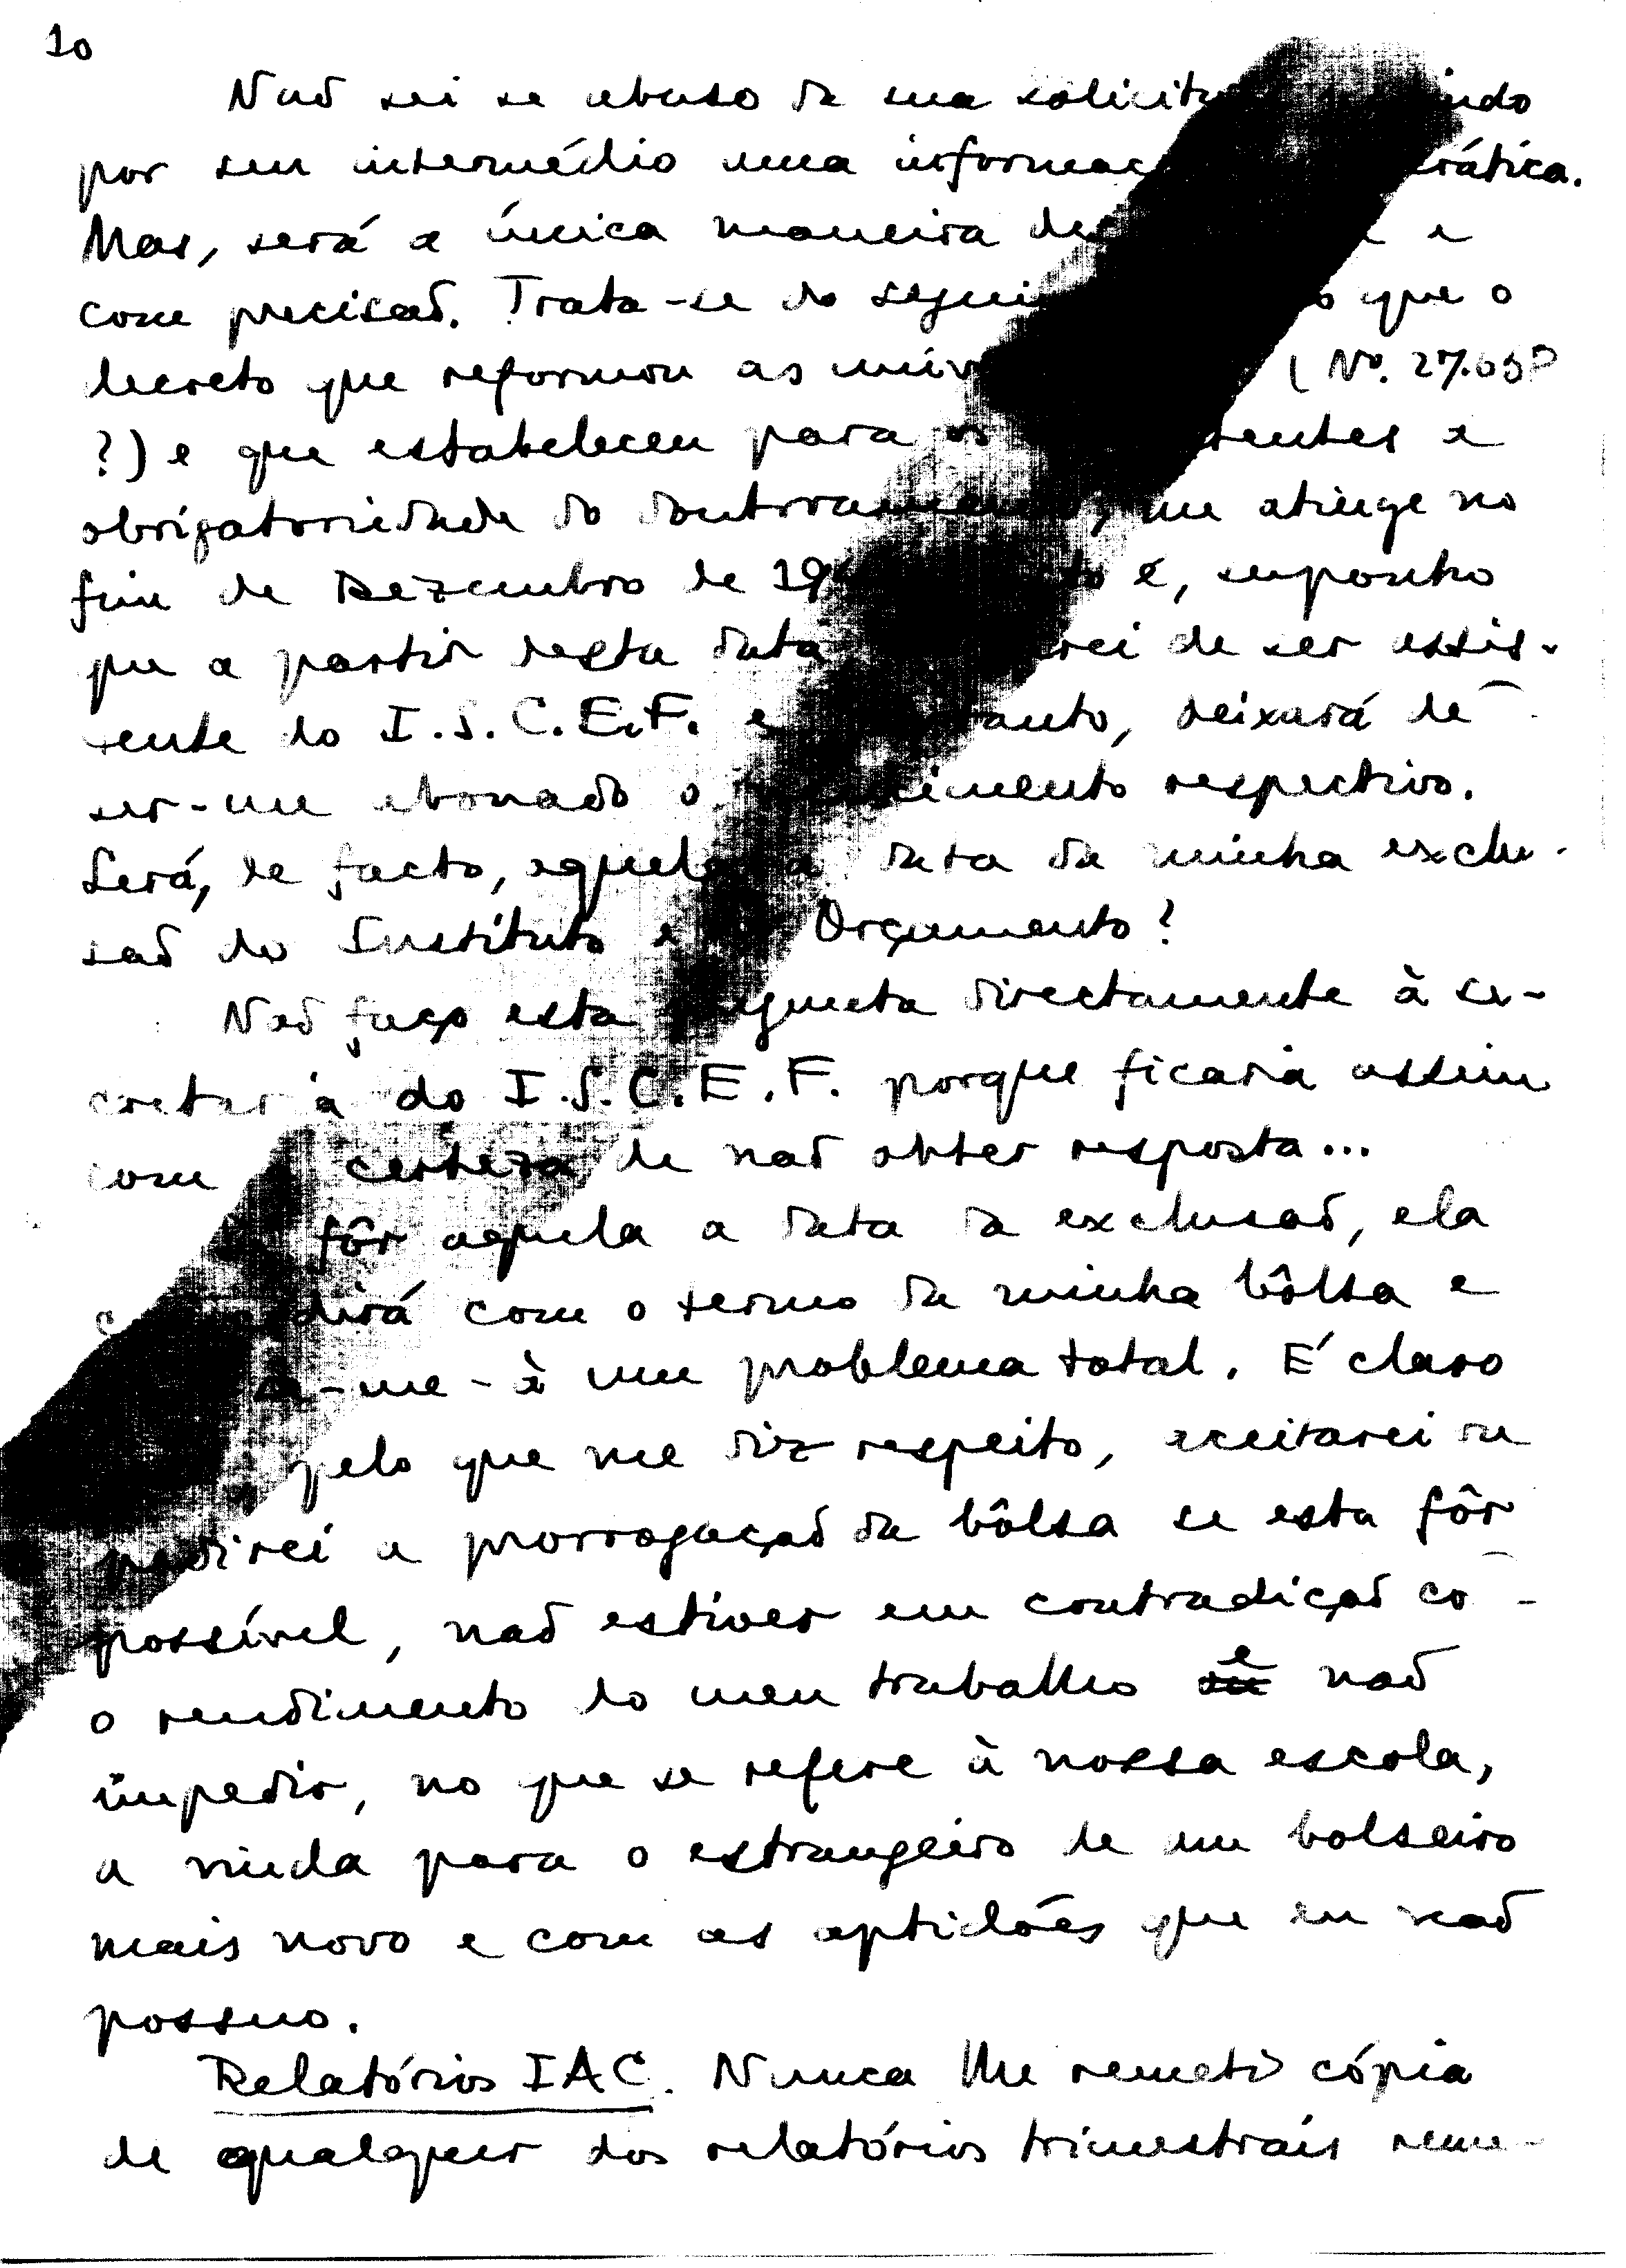 10
Não sei se abuso da sua
por seu intermédio uma
Mas, será a única maneira de e
com precisão. Trata-se do que o
decreto que reformou as (Nº.
?) e que estabeleceu para os a
obrigatoriedade do doutoramento, me atinge no
fim de Dezembro de é, suponho
que a partir desta data de ser assis-
tente do I.S.C.E.F. e deixará de
ser-me abonado o respectivo.
Será, de facto, aquela a data da minha exclu-
são do Instituto e Orçamento?
Não faço esta pregunta directamente à se-
cretaria do I.S.C.E.F. porque ficaria assim
com a certeza de não obter resposta...
fôr aquela a data da exclusão, ela
com o termo da minha bôlsa e
-me-à um problema total. É claro
pelo que me diz respeito, aceitarei ou
pedirei a prorrogação da bôlsa se esta fôr
possível, não estiver em contradição co-
o rendimento do meu trabalho e não
impedir, no que se refere à nossa escola,
a vinda para o estrangeiro de um bolseiro
mais novo e com as aptidões que eu não
possuo.
Relatórios IAC. Nunca lhe remeti cópia
de qualquer dos relatórios trimestrais reme-